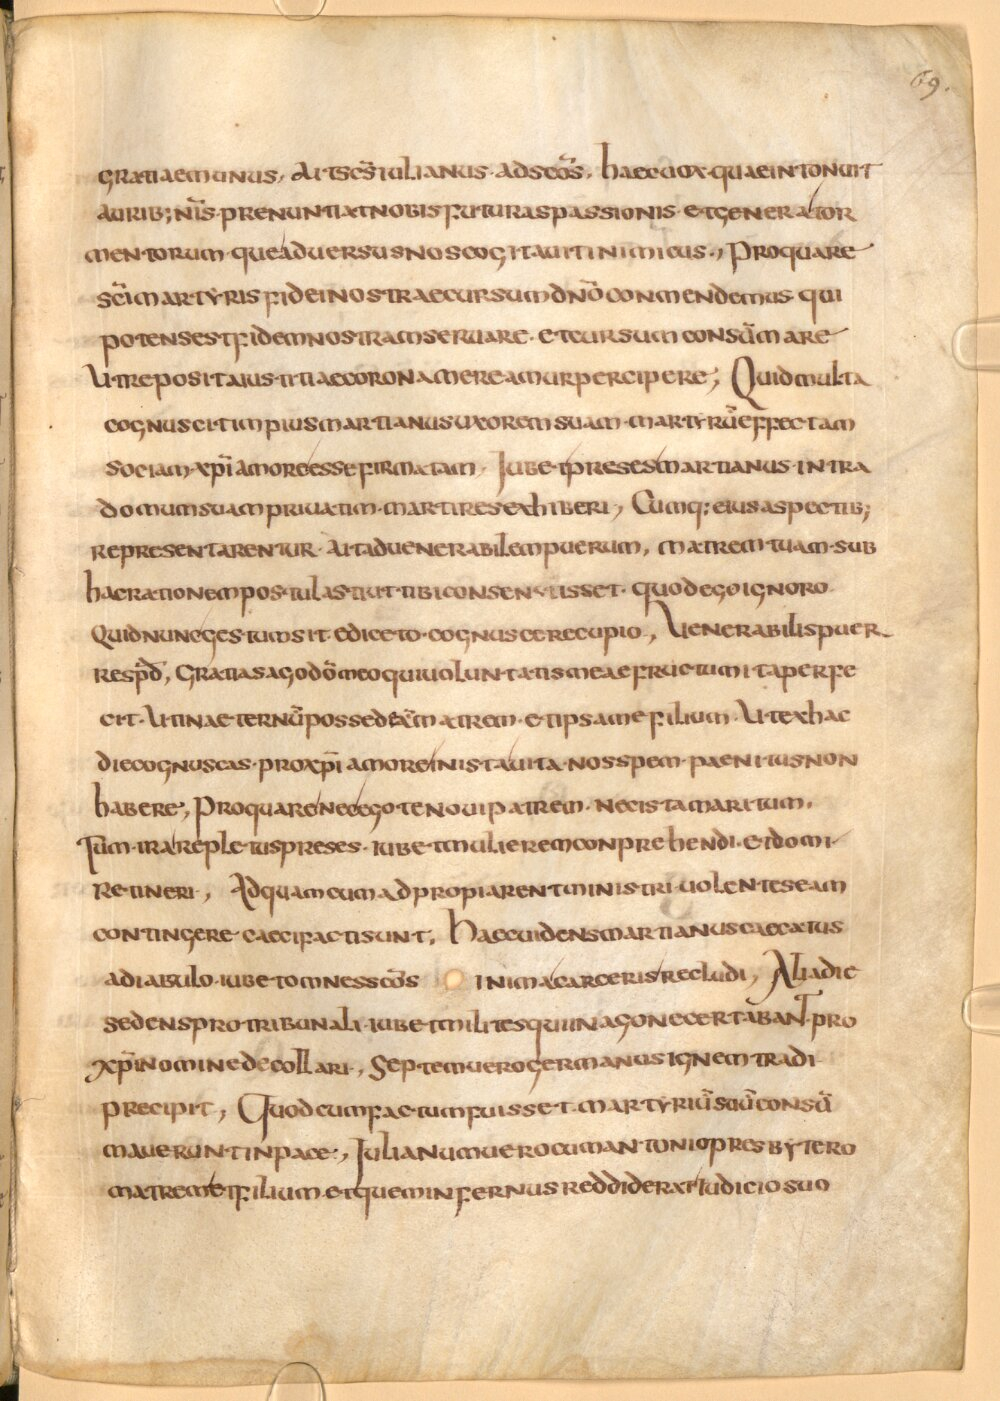 69.
gratiae munus, Ait scs̄ iulianus ad scōs, haec uox quae intonuit
aurib; nrīs prenuntiat nobis futuras passionis et genera tor
mentorum que aduersus nos cogitauit inimicus, Pro qua re
scī martyris fidei nostrae cursum dnō conmendemus qui
potens est fidem nostram seruare et cursum consūmare
Ut repositam iustitiae corona mereamur percipere; Quid multa
cognuscit impius martianus uxorem suam martyrū effectam
sociam xpī amore esse firmatam Iubet preses martianus intra
domum suam priuatim martires exhiberi, Cumq; eius aspectib;
representarentur Ait ad uenerabilem puerum, matrem tuam sub
hac rationem postulasti ut tibi consentisset quod ego ignoro
Quid nunc gestum sit ediceto cognuscere cupio, Uenerabilis puer
respd̄, Gratias ago dō meo qui uoluntatis meae fructum ita perfe
cit Ut in aeternū possedeā matrem et ipsa me filium Ut ex hac
die cognuscas pro xpī amore in ista uita nos spem paenitus non
habere, Pro qua re nec ego te noui patrem nec ista maritum,
Tum ira repletus preses iubet mulierem conprehendi et domi
Retineri, Ad quam cum adpropiarent ministri uolentes eam
contingere caeci facti sunt, Haec uidens martianus caecatus
a diabulo iubet omnes scōs in ima carceris recludi, Alia die
sedens pro tribunali iubet milites qui in agone certaban̄t pro
xpī nomine decollari, Septem uero germanus ignem tradi
precipit, Quod cum factum fuisset martyriū suū consū
mauerunt in pace, Iulianum uero cum antonio presbytero
matrem et filium et quem infernus reddiderat iudicio suo